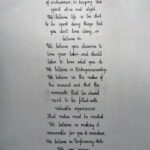 of endeavour in keeping that
spirit alive and alight.
We believe life is too short
to be spent doing things that
you don't love doing, or
believe in.
We believe you deserve to
love your labor and should
labor to love what you do.
We believe in Entrepreneurship
We believe in the value of
the moment and that the
moments that lie ahead
need to be filled with
valuable experiences
That value must be created
We believe in making it
memorable for you & ourselves
We believe in Performing Arts